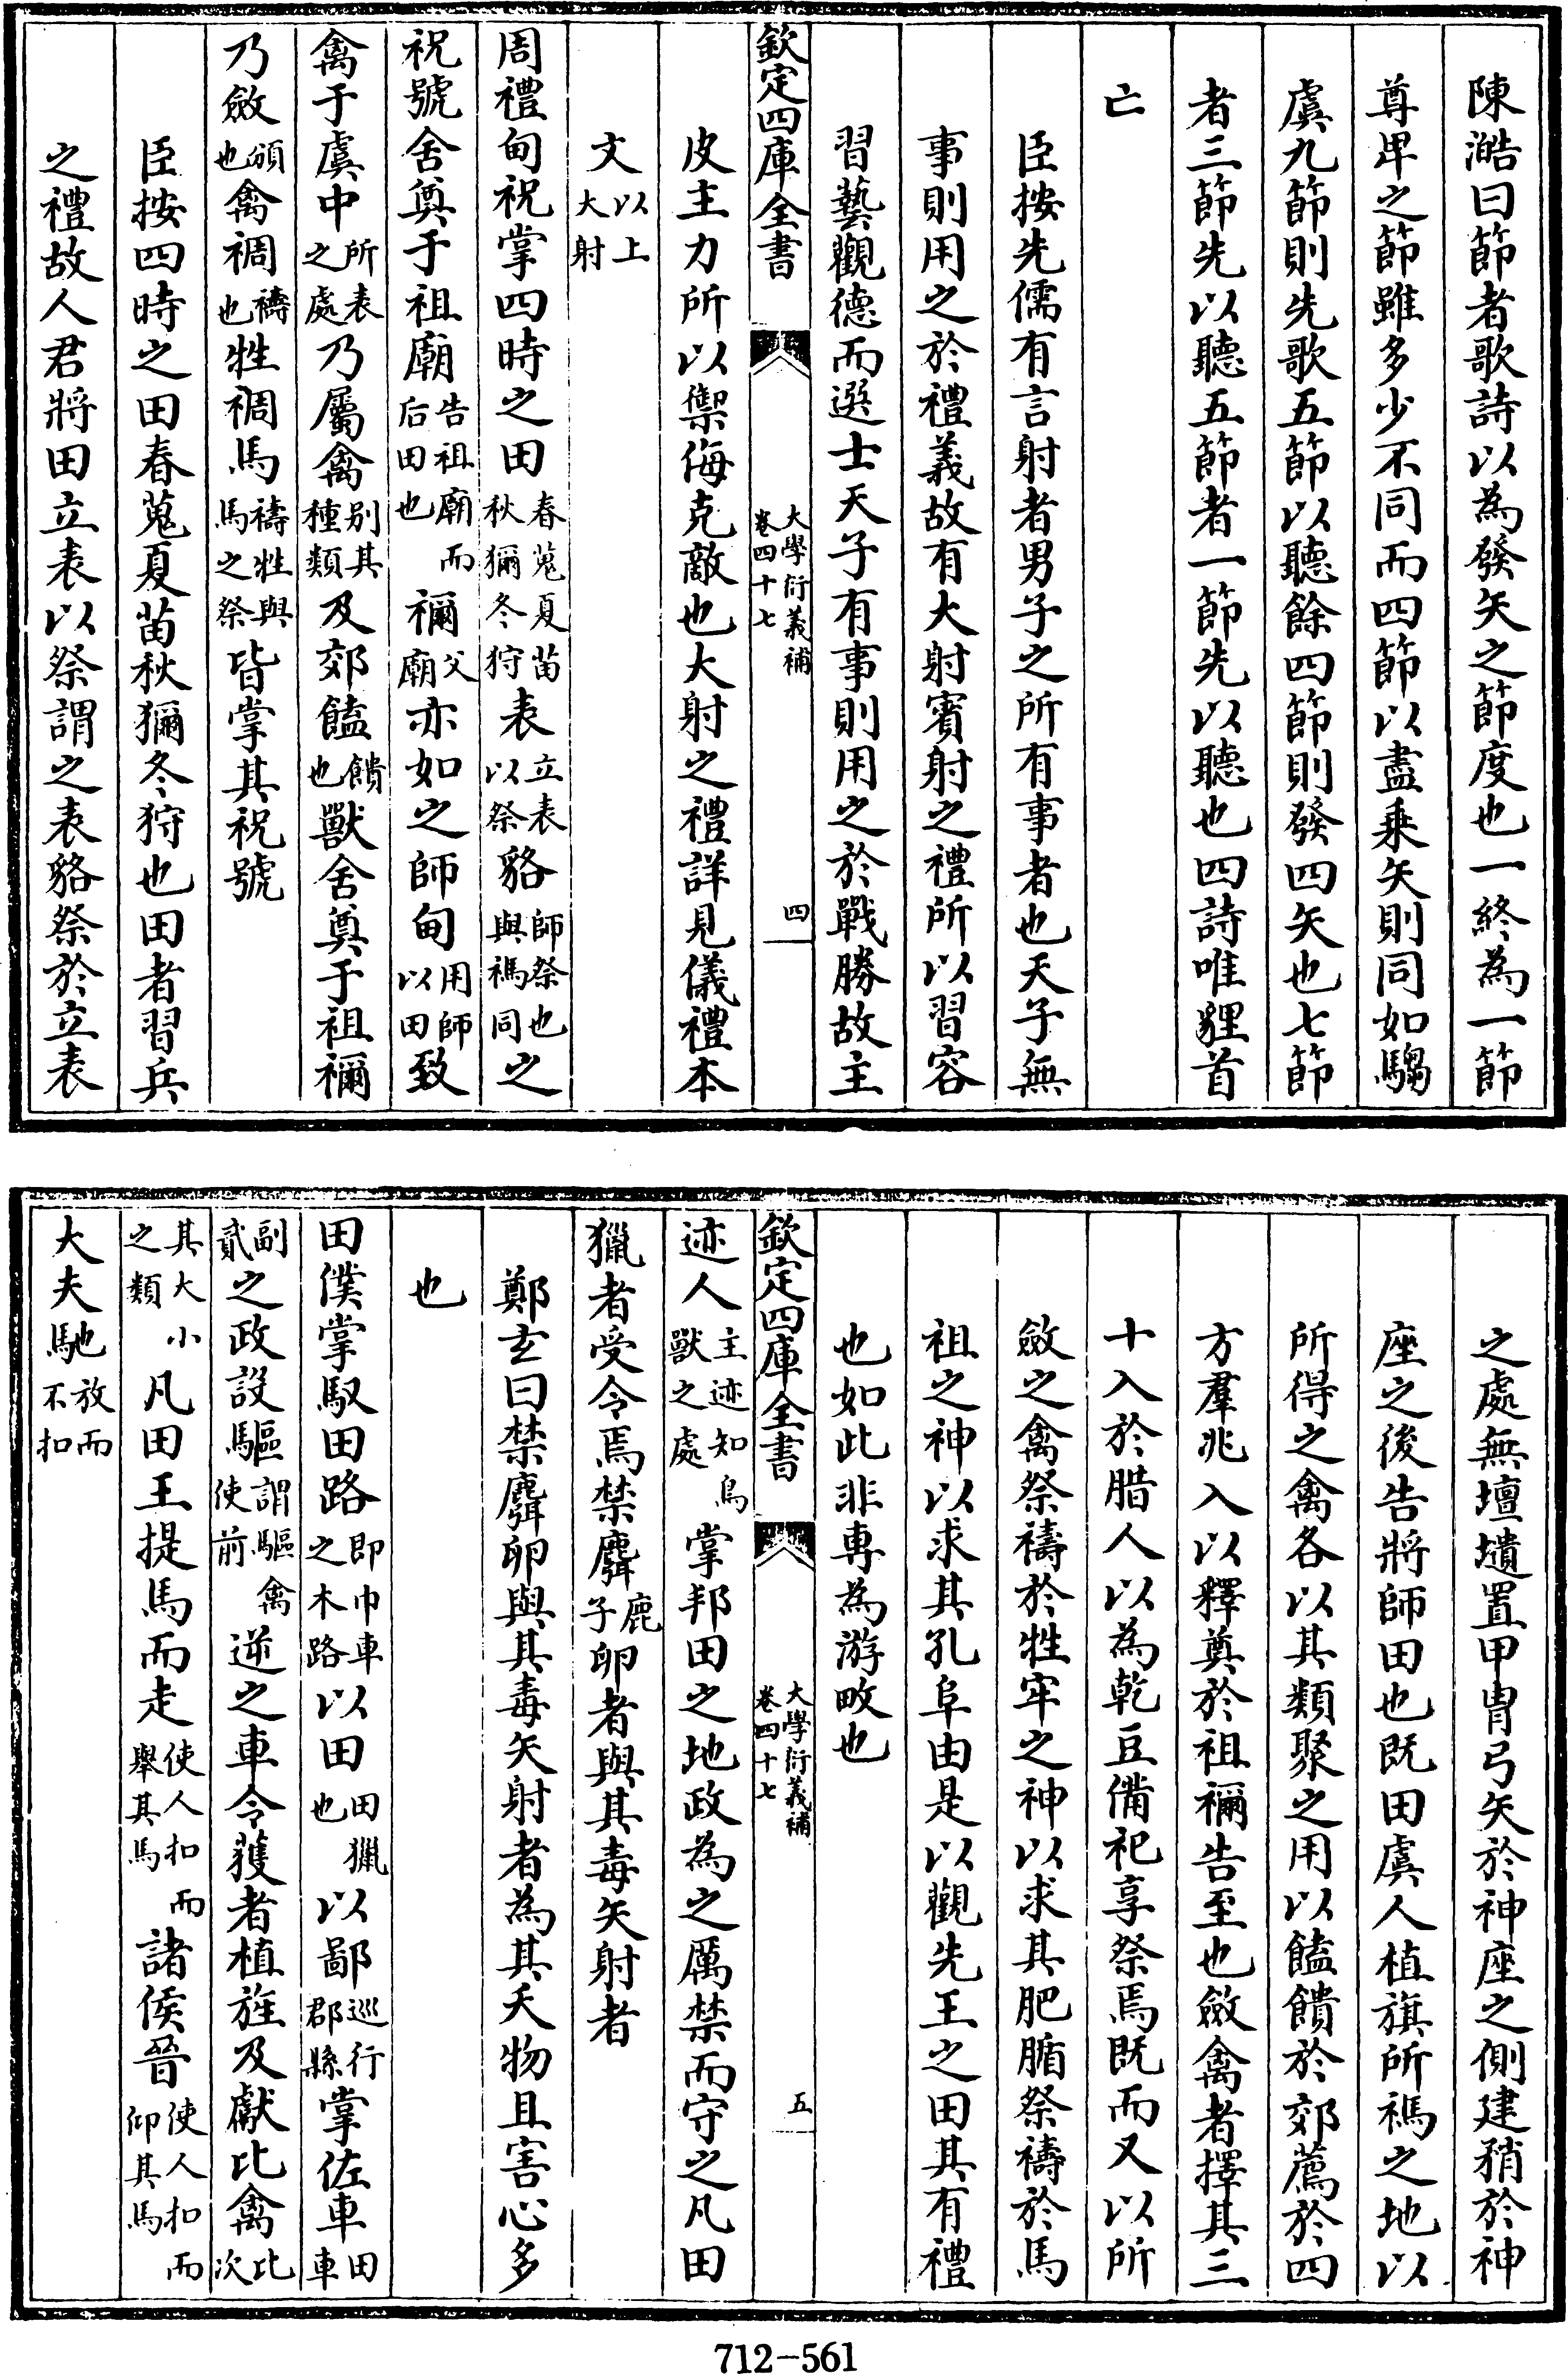 陳澔曰節者歌詩以為發矢之節度也一終為一節
尊卑之節雖多少不同而四節以盡乘矢則同如騶
虞九節則先歌五節以聽餘四節則發四矢也七節
者三節先以聽五節者一節先以聽也四詩唯貍首
亡
臣按先儒有言射者男子之所有事者也天子無
事則用之於禮義故有大射賓射之禮所以習容
習藝觀德而選士天子有事則用之於戰勝故主
欽定四庫全書 大學衍義補 卷四十七 四
皮主力所以禦侮克敵也大射之禮詳見儀禮本
文以上大射
周禮甸祝掌四時之田春蒐夏苗秋獮冬狩表立表以祭貉師祭也與禡同之
祝號舍奠于祖廟告祖廟而后田也禰父廟亦如之師甸用師以田致
禽于虞中所表之處乃屬禽别其種類及郊饁饋也獸舍奠于祖禰
乃斂頒也禽禂禱也牲禂馬禱牲與馬之祭皆掌其祝號
臣按四時之田春蒐夏苗秋獮冬狩也田者習兵
之禮故人君將田立表以祭謂之表貉祭於立表
之處無壇壝置甲冑弓矢於神座之側建矟於神
座之後告將師田也既田虞人植旗所禡之地以
所得之禽各以其類聚之用以饁饋於郊薦於四
方羣兆入以釋奠於祖禰告至也斂禽者擇其三
十入於腊人以為乾豆備祀享祭焉既而又以所
斂之禽祭禱於牲牢之神以求其肥腯祭禱於馬
祖之神以求其孔阜由是以觀先王之田其有禮
也如此非專為游畋也
欽定四庫全書 大學衍義補 卷四十七 五
迹人主迹知鳥獸之處掌邦田之地政為之厲禁而守之凡田
獵者受令焉禁麛鹿子卵者與其毒矢射者
鄭玄曰禁麛卵與其毒矢射者為其夭物且害心多
也
田僕掌馭田路即巾車之木路以田田獵也以鄙巡行郡縣掌佐車田車
副貳之政設驅謂驅禽使前逆之車令獲者植旌及獻比禽比次
其大小之類凡田王提馬而走使人扣而舉其馬諸侯晉使人扣而仰其馬
大夫馳放而不扣
712-561